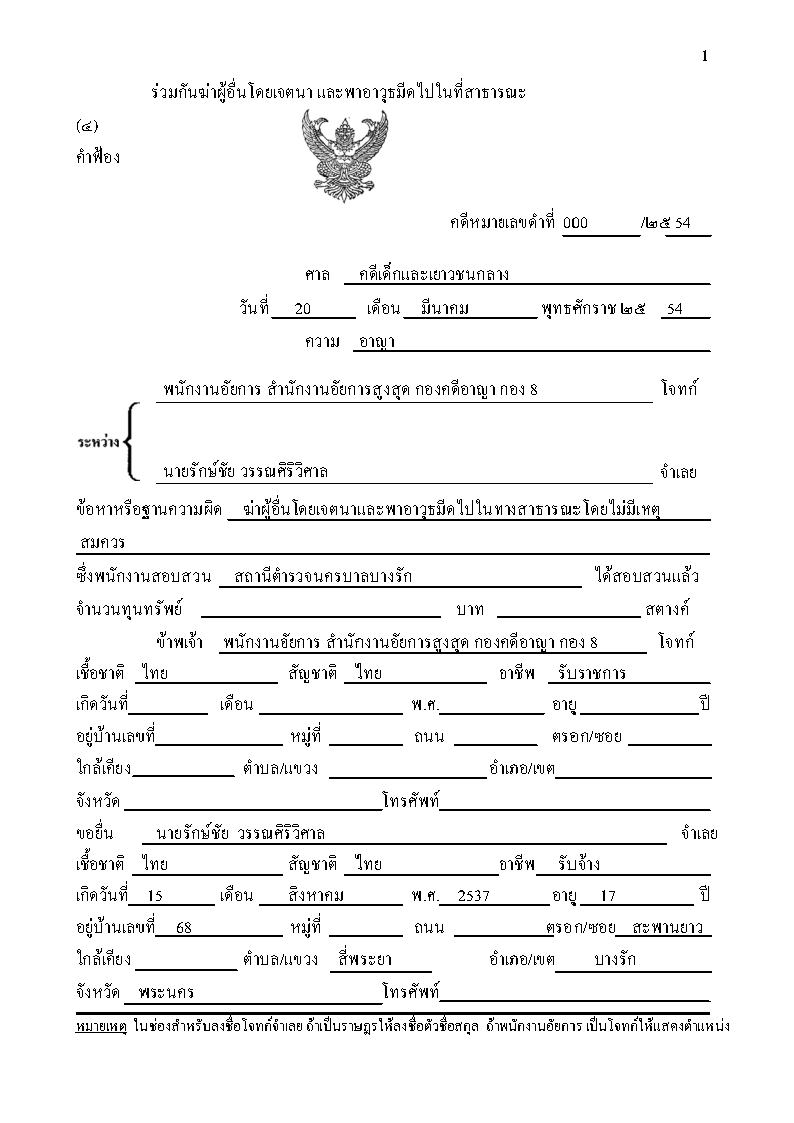 1
ร่วมกันฆ่าผู้อื่นโดยเจตนา และพาอาวุธมีดไปในที่สาธารณะ
(๔)
คำฟ้อง
คดีหมายเลขดำที่ 000 /๒๕ 54
ศาล คดีเด็กและเยาวชนกลาง
วันที่ 20 เดือน มีนาคม พุทธศักราช ๒๕ 54
ความ อาญา
พนักงานอัยการ สำนักงานอัยการสูงสุด กองคดีอาญา กอง 8 โจทก์
ระหว่าง
นายรักษ์ชัย วรรณศิริวิศาล จำเลย
ข้อหาหรือฐานความผิด ฆ่าผู้อื่นโดยเจตนาและพาอาวุธมีดไปในทางสาธารณะโดยไม่มีเหตุ
สมควร
ซึ่งพนักงานสอบสวน สถานีตำรวจนครบาลบางรัก ได้สอบสวนแล้ว
จำนวนทุนทรัพย์ บาท สตางค์
ข้าพเจ้า พนักงานอัยการ สำนักงานอัยการสูงสุด กองคดีอาญา กอง 8 โจทก์
เชื้อชาติ ไทย สัญชาติ ไทย อาชีพ รับราชการ
เกิดวันที่ เดือน พ.ศ. อายุ ปี
อยู่บ้านเลขที่ หมู่ที่ ถนน ตรอก/ซอย
ใกล้เคียง ตำบล/แขวง อำเภอ/เขต
จังหวัด โทรศัพท์
ขอยื่น นายรักษ์ชัย วรรณศิริวิศาล จำเลย
เชื้อชาติ ไทย สัญชาติ ไทย อาชีพ รับจ้าง
เกิดวันที่ 15 เดือน สิงหาคม พ.ศ. 2537 อายุ 17 ปี
อยู่บ้านเลขที่ 68 หมู่ที่ ถนน ตรอก/ซอย สะพานยาว
ใกล้เคียง ตำบล/แขวง สี่พระยา อำเภอ/เขต บางรัก
จังหวัด พระนคร โทรศัพท์
หมายเหตุ ในช่องสำหรับลงชื่อโจทก์จำเลย ถ้าเป็นราษฎรให้ลงชื่อตัวชื่อสกุล ถ้าพนักงานอัยการ เป็นโจทก์ให้แสดงตำแหน่ง